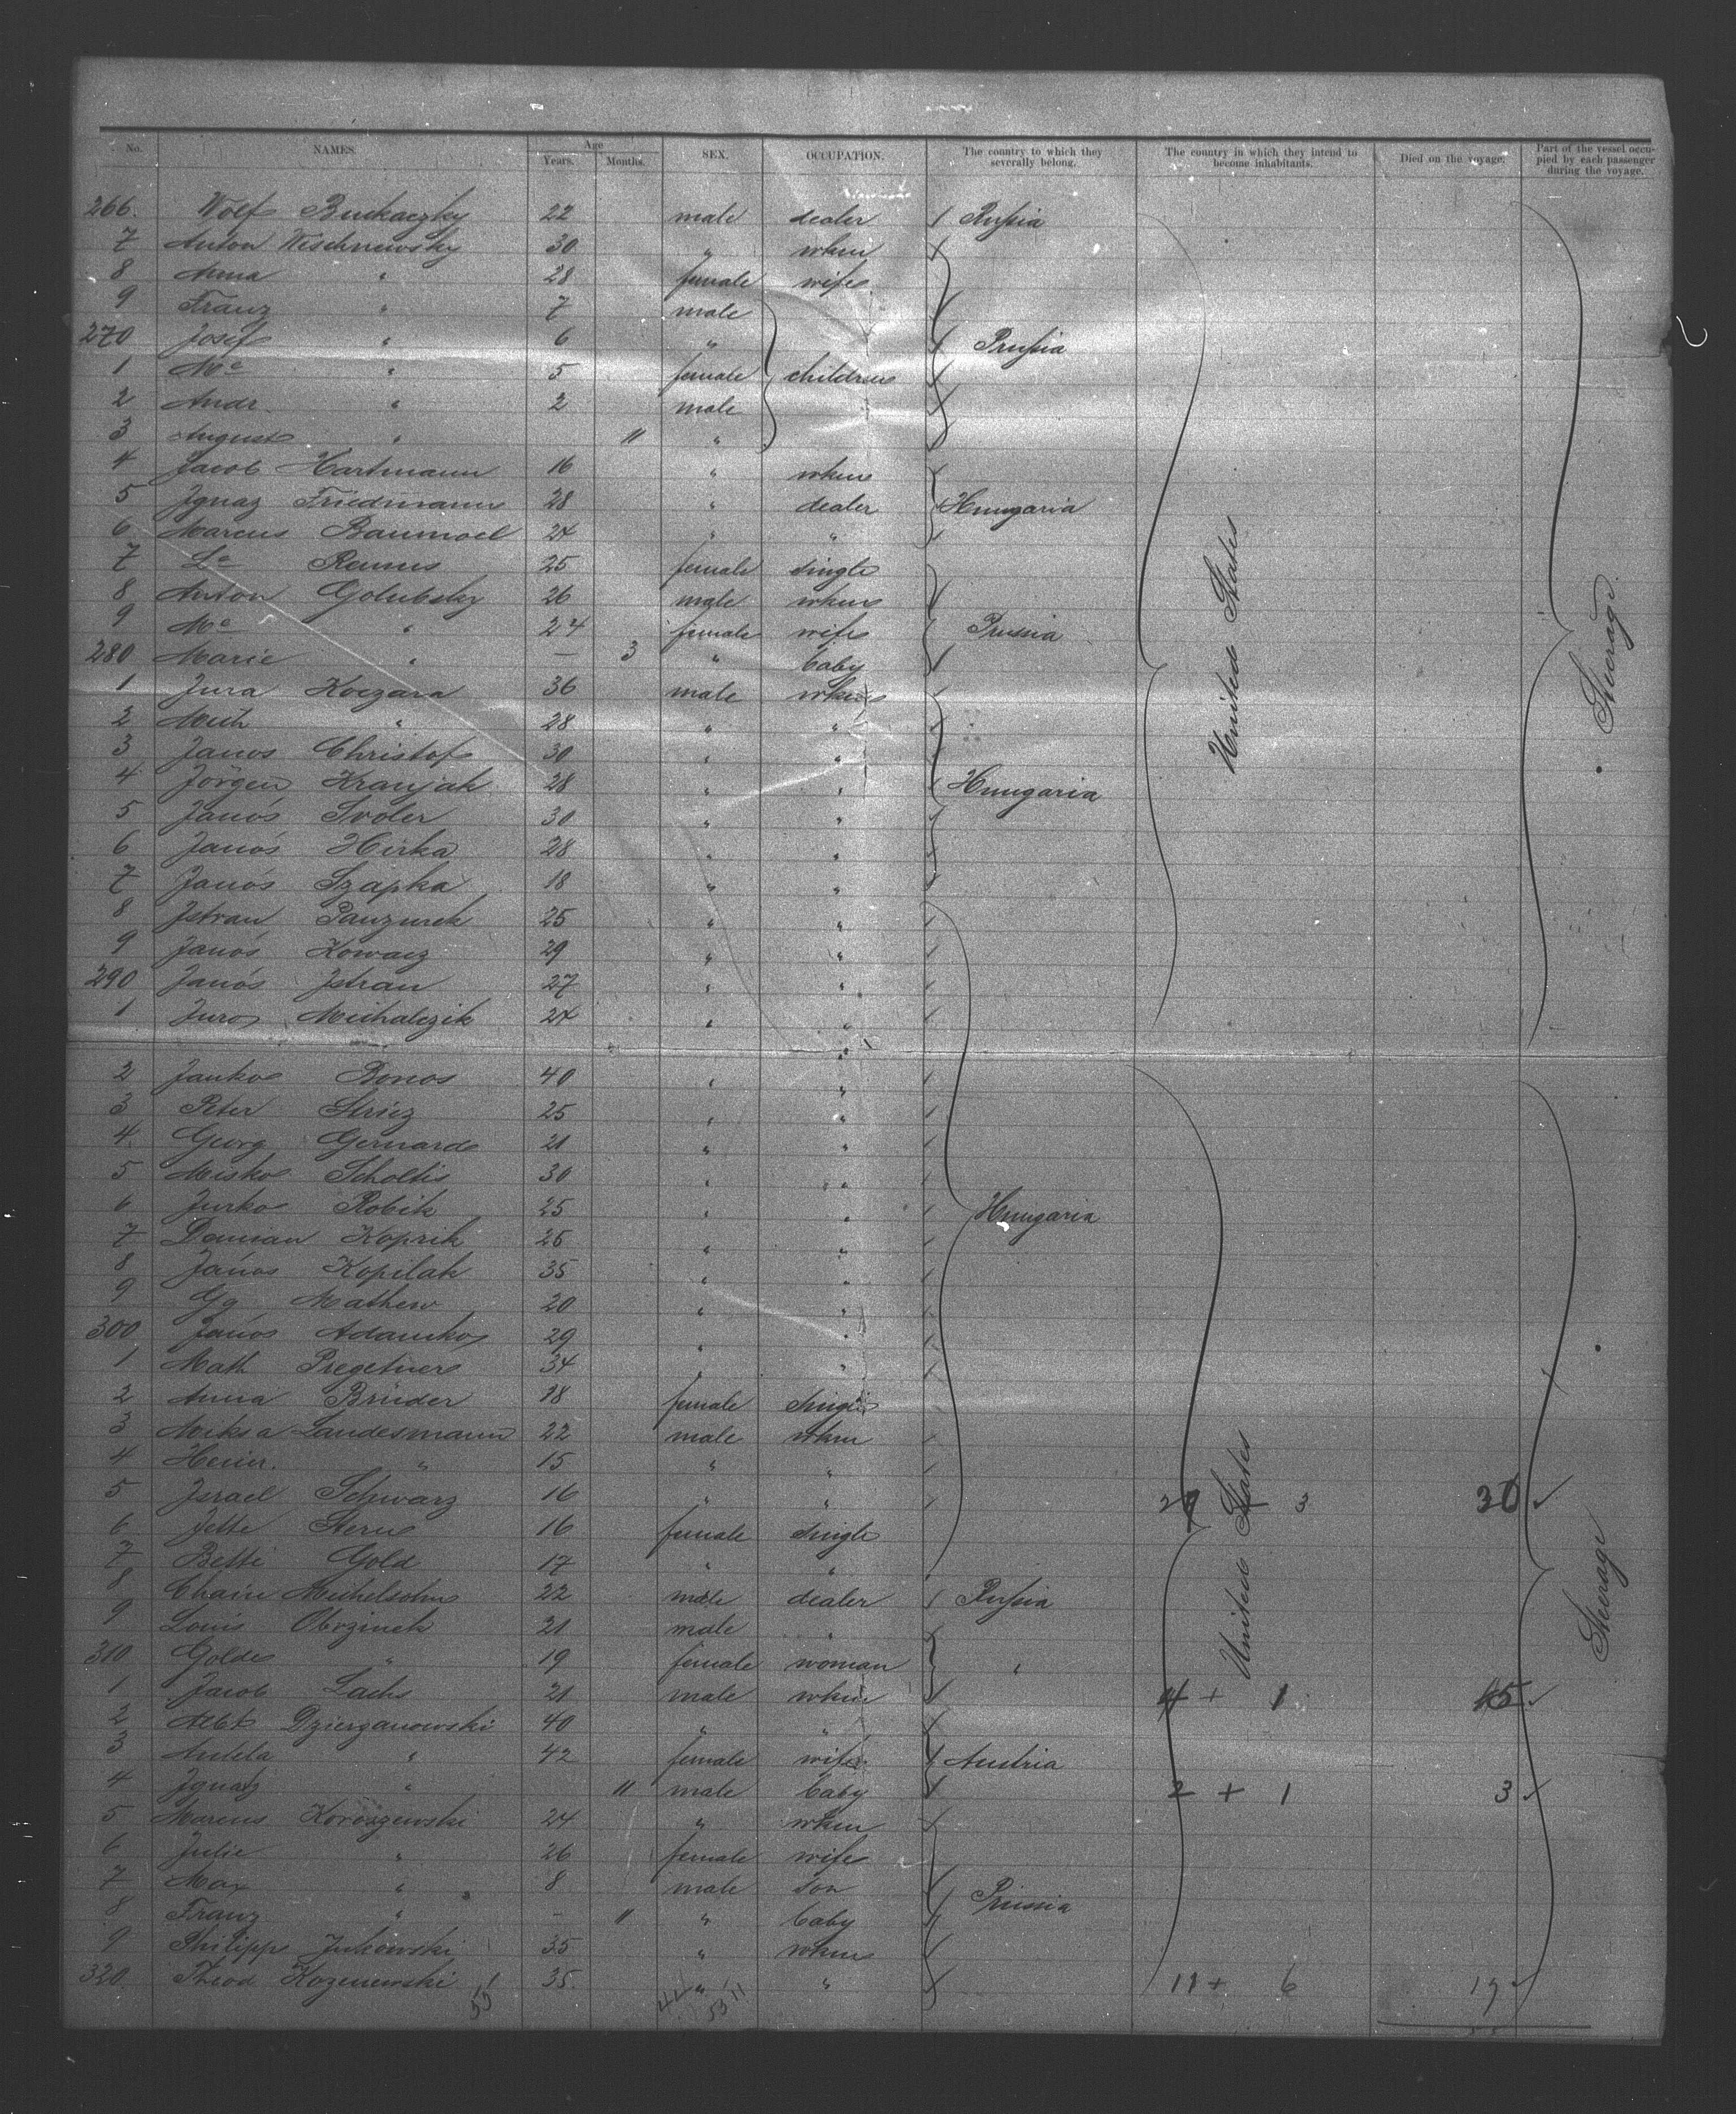 No. NAMES. Age Years. Months. SEX. OCCUPATION. The country to which they severally belong. The country in which they intend to become inhabitants. Died on the voyage. Part of the vessel occupied by each passenger during the voyage.
266. Wolf 22 male dealer Russia
7 Anton Wischnewsky 30 " wkm
8 Anna " 28 female wife
9 Franz " 7 male
270 Josef " 6 " Prussia
1 Me " 5 female children
2 Andr. " 2 male
3 August " 11 "
4 Jacob Hartmann 16 " wkm
5 Ignaz Friedmann 28 " dealer Hungaria
6 Marcus Baumoel 24 " "
7 Le 25 female single
8 Anton Golubsky 26 male wkm
9 Me " 24 female wife Prussia
280 Marie " — 3 " baby
1 Jura Koczara 36 male wkm
2 Mich " 28 " "
3 Janos Christof 30 " "
4 Jörgen Kranjak 28 " " Hungaria
5 Janós Svoler 30 " "
6 Janós Hirka 28 " "
7 Janós Szapka 18 " "
8 Istvan 25 " "
9 Janós Kowacz 29 " "
290 Janós Istvan 27 " "
1 Juros Michalczik 24 " "
2 Janko Bonos 40 " "
3 Peter 25 " "
4 Georg Gernard 21 " "
5 Misko Scholtis 30 " "
6 Jurko Robik 25 " " Hungaria
7 Damian Koprik 26 " "
8 János Kopilak 35 " "
9 Gg Mathew 20 " "
300 János Adamko 29 " "
1 Math Pregetner 34 " "
2 Anna Brüder 18 female single
3 Miksa Landesmann 22 male wkm
4 Heinr. " 15 " "
5 Israel Schwarz 16 " " 3
6 Jette Stern 16 female single
7 Betti Gold 17 " "
8 Chaim Michelsohn 22 male dealer Russia
9 Louis Obrzinek 21 male "
310 Golde " 19 female woman "
1 Jacob Lachs 21 male wkm 4 + 1
2 Albt Dzierzanowski 40 " "
3 Aniela " 42 female wife Austria
4 Ignatz " 11 male baby 2 + 1 3
5 Marcus Koroszewski 24 " wkm
6 Julie " 26 female wife
7 Max " 8 male son
8 Franz " - 11 " baby Prussia
9 Philipp Jukowski 35 " wkm
320 Theod Kozenewski 35. " " 11 + 6 17
United States
Steerage
United States
Steerage